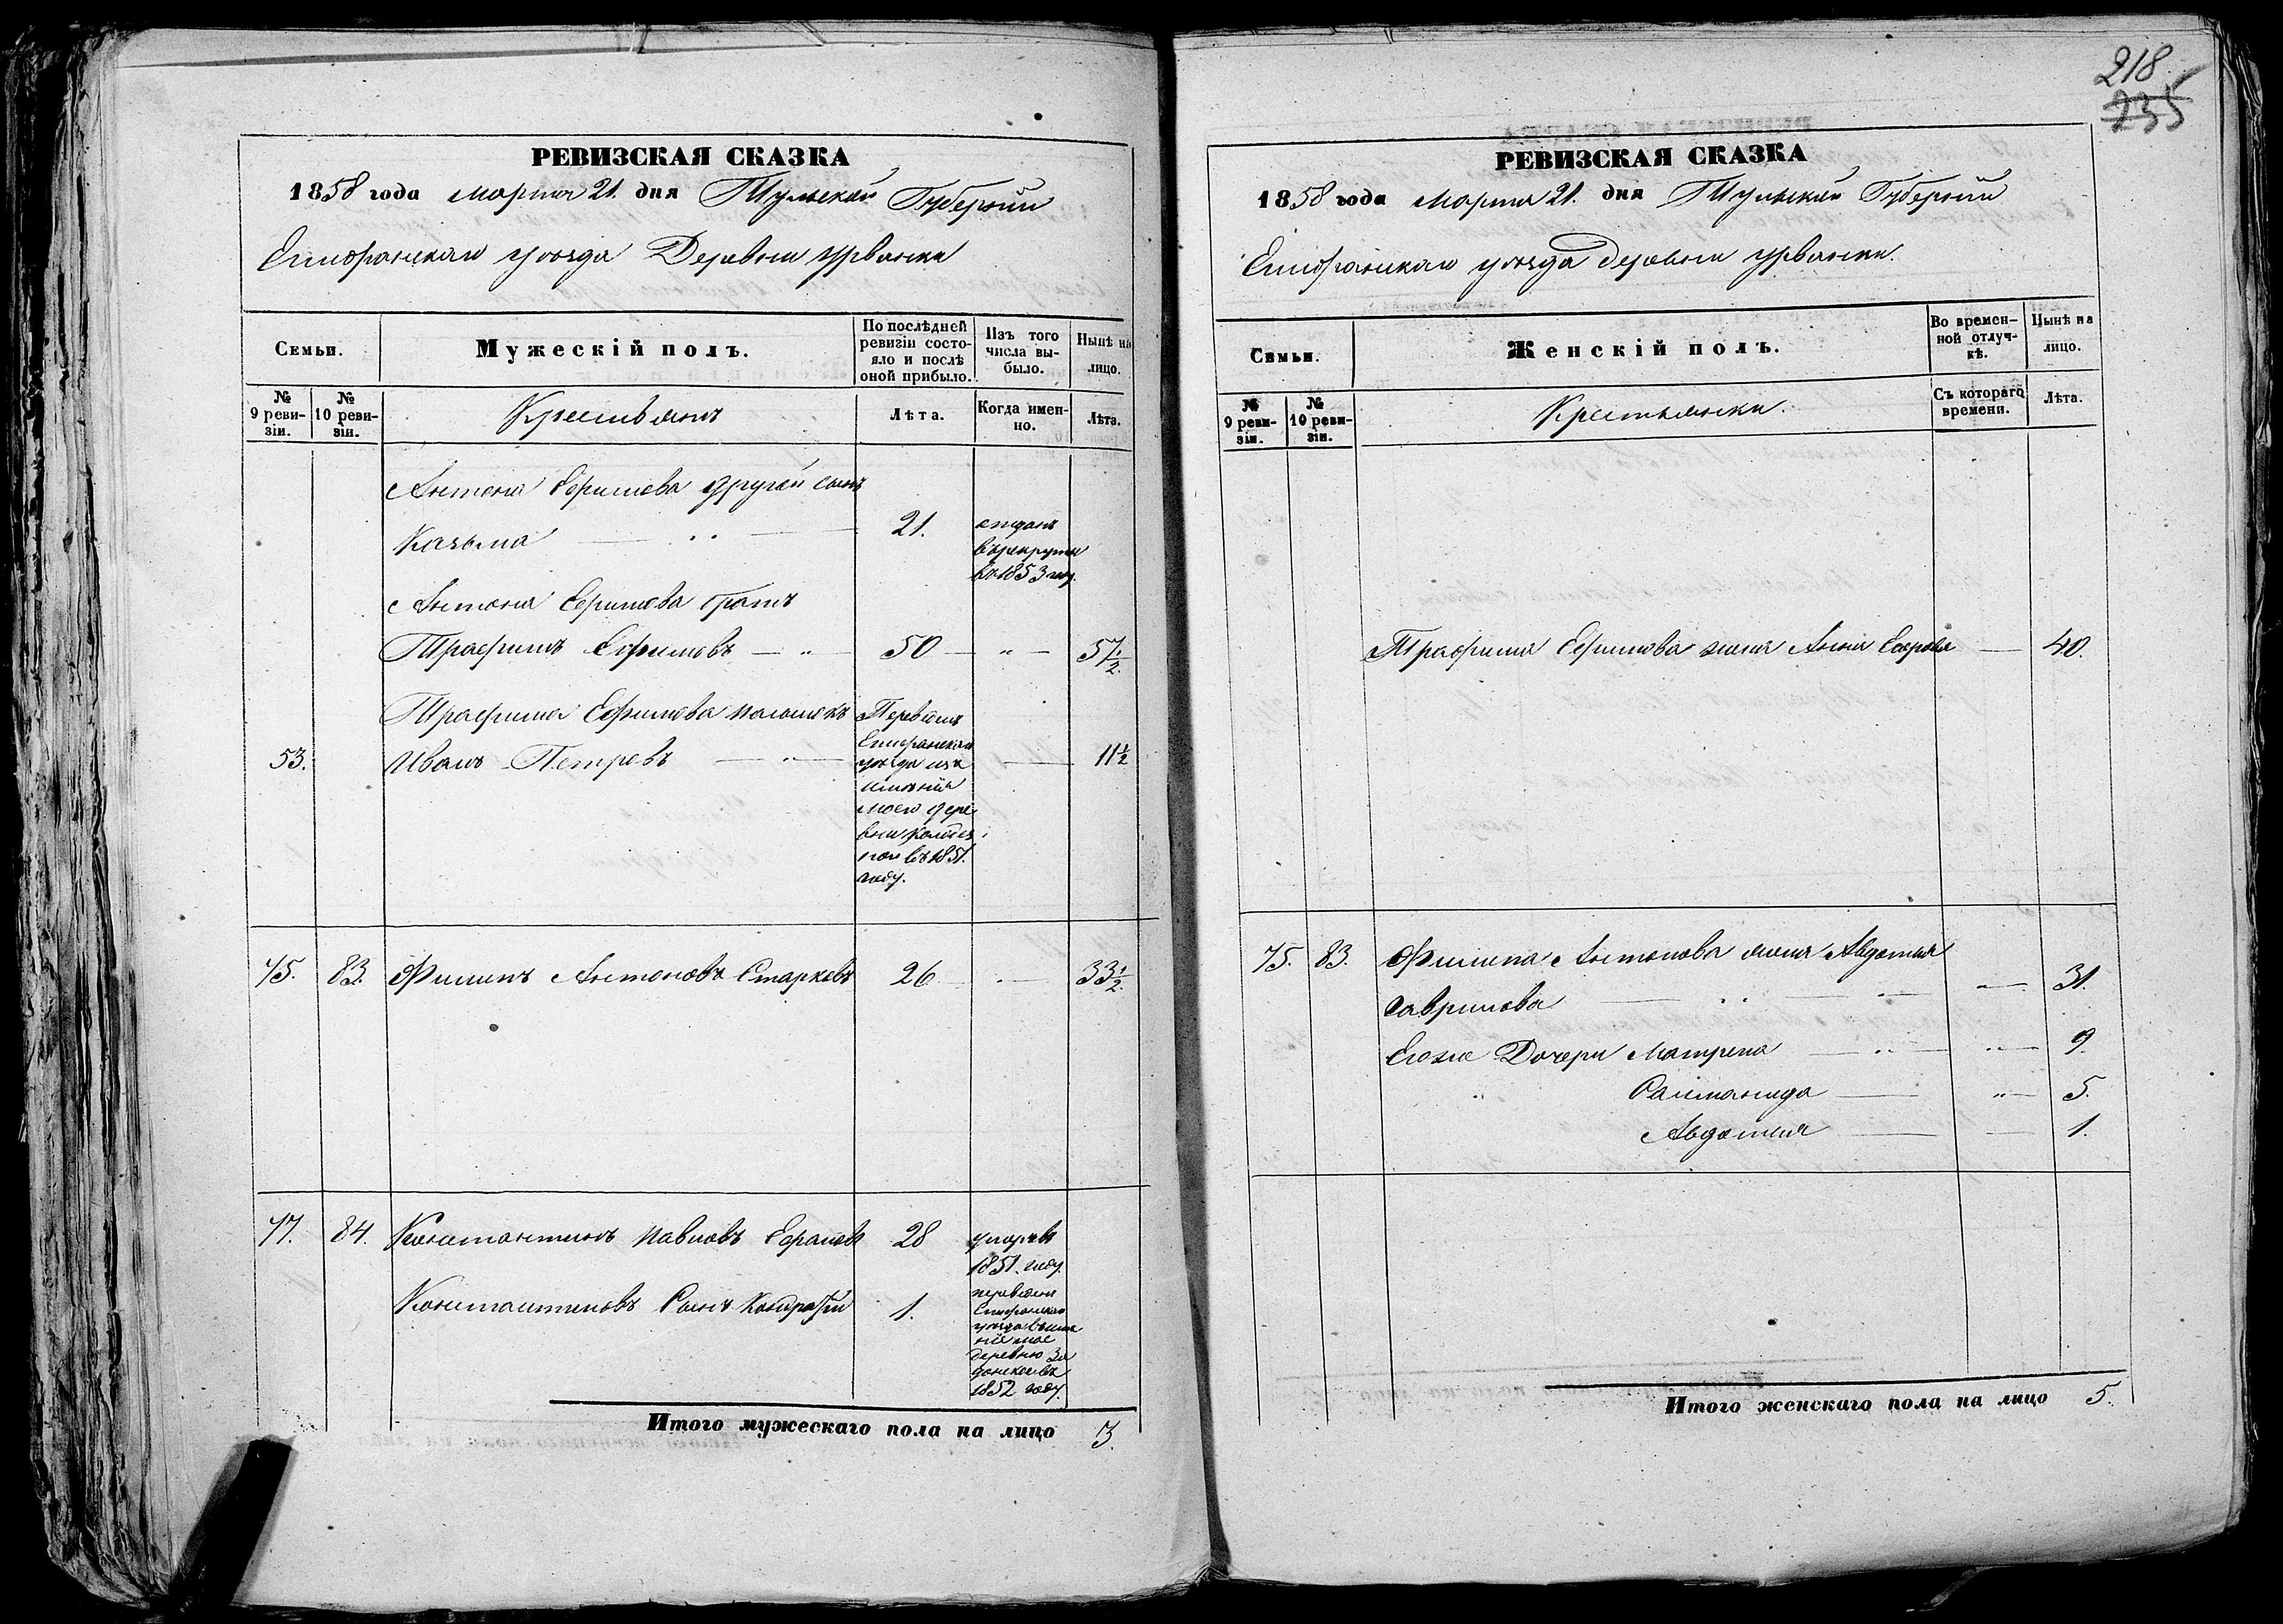 РЕВИЗСКАЯ СКАЗКА
1858 года марта 21. дня Тульской Губернiи
Епифанскаго уѣзда Деревни Урванки
Семьи.
Мужескiй полъ.
По послѣдней ревизiи состояло и послѣ оной прибыло.
Изъ того числа выбыло.
Нынѣ на лицо.
№ 9 ревизiи.
№ 10 ревизiи.
Крестьянъ
Лѣта.
Когда именно.
Лѣта.
Антона Ефимова другой сынъ
Казьма 21. отданъ
врекруты
въ 1853 году.
Антона Ефимова братъ
Трафимъ Ефимовъ — „ — 50 — „ — 57 1/2.
Трафима Ефимова
53. Иванъ Петровъ — „ — 11 1/2
Переведенъ
Епифанскаго
уѣзда изъ
имѣнiя
моего дере
вни
въ 1851.
году.
75. 83. Филипъ Антоновъ Старковъ 26 33 1/2.
77. 84. Константинъ Павловъ 28 умеръ въ
1851. году.
Константиновъ Сынъ Кондратiй 1. переведенъ
Епифанскаго
уѣзда въ имѣ
нiе мое
деревню За
донскую въ
1852 году.
Итого мужескаго пола на лицо 3.
218
235
РЕВИЗСКАЯ СКАЗКА
1858 года марта 21. дня Тульской Губернiи
Епифанскаго уѣзда деревни Урванки.
Семьи.
Женскiй полъ.
Во временной отлучкѣ.
Нынѣ на лицо.
№ 9 ревизiи.
№ 10 ревизiи.
Крестьянки.
Съ котораго времени.
Лѣта.
Трафима Ефимова жена Анна — 40.
75. 83. Филипа Антонова жена Авдотья
Гаврилова 31.
Егоже Дочери Матрена 9.
„ 5.
Авдотья 1.
Итого женскаго пола на лицо 5.